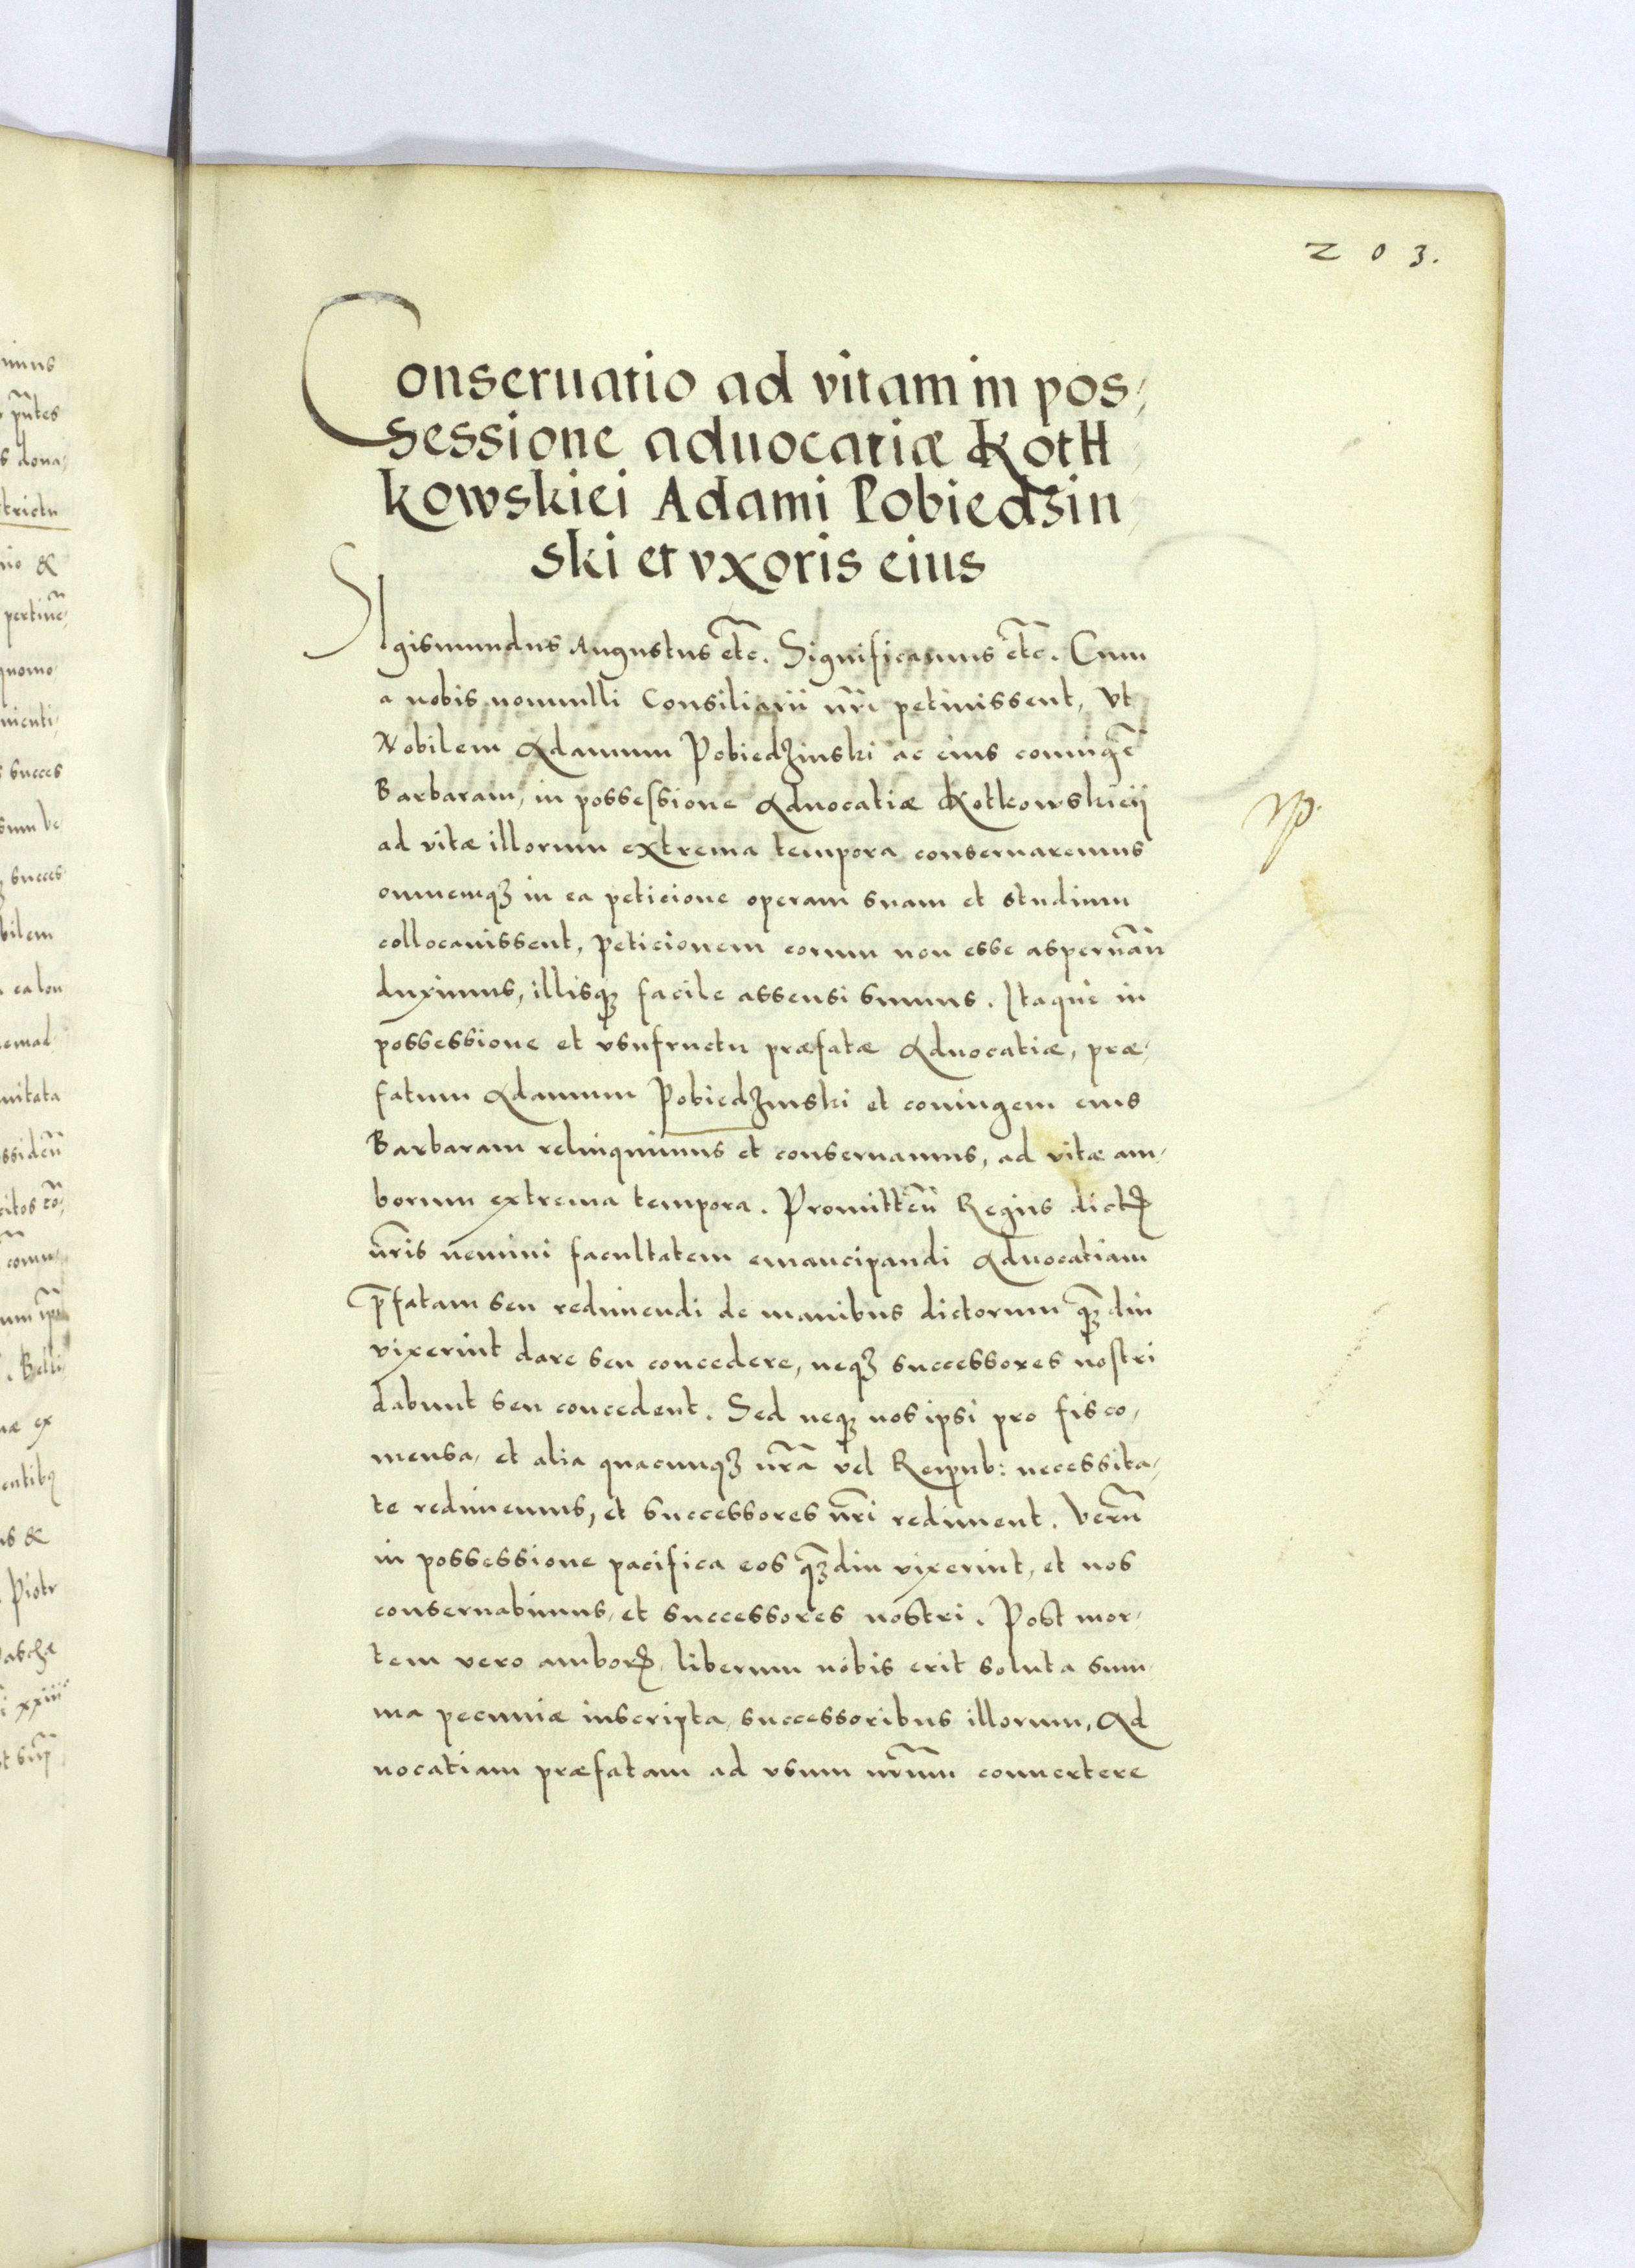 203.
Conseruatio ad vitam in pos,
sessione aduocatiæ Koth
kowskiei Adami Pobiedzin,
ski et vxoris eius
SIgismundus Augustus etc̃. Significamus etc̃. Cum
a nobis nonnulli Consiliarii nr̃i petiuissent, Vt
Nobilem Adamum Pobiedzinski ac eius coniugẽ
Barbaram, in possessione Aduocatiæ Kotkowskieij
ad vitæ illorum extrema tempora conseruaremus
omnemqʒ in ea peticione operam suam et studium
collocauissent, peticionem eorum non esse aspernãn
duximus, illisqʒ facile assensi sumus. Itaque in
possessione et vsufructu præfatæ Aduocatiæ, præ,
fatum Adamum Pobiedzinski et coniugem eius
Barbaram relinquimus et conseruamus, ad vitæ am,
borum extrema tempora. Promitteñ Regiis dictꝭ
nr̃is nemini facultatem emancipandi Aduocatiam
p̃fatam seu redimendi de manibus dictorum qʒ̃diu
vixerint dare seu concedere, neqʒ successores nostri
dabunt seu concedent. Sed neqʒ nos ipsi pro fisco,
mensa, et alia quacunqʒ nr̃a vel Reipub: necessita,
te redimemus, et successores nr̃i rediment. Verũ
in possessione pacifica eos qʒ̃diu vixerint, et nos
conseruabimus, et successores nostri. Post mor,
tem vero amborꝝ, liberum nobis erit soluta sum,
ma pecuniæ inscripta, successoribus illorum, Ad
uocatiam præfatam ad vsum nr̃um conuertere